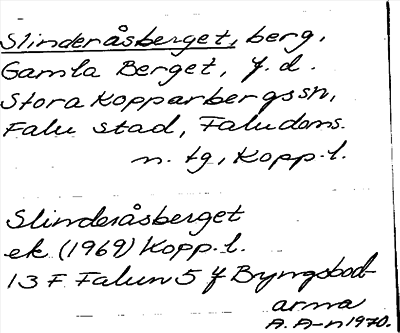 Slinderåsberget, berg,
Gamla Berget, f. d.
Stora Kopparbergs sn,
Falu stad, Faludoms.
n. tg, Kopp. l.
Slinderåsberget
ek. (1969) Kopp. l.
13 F Falun 5 f Bryngsbod-
arna
A. A-n 1970.